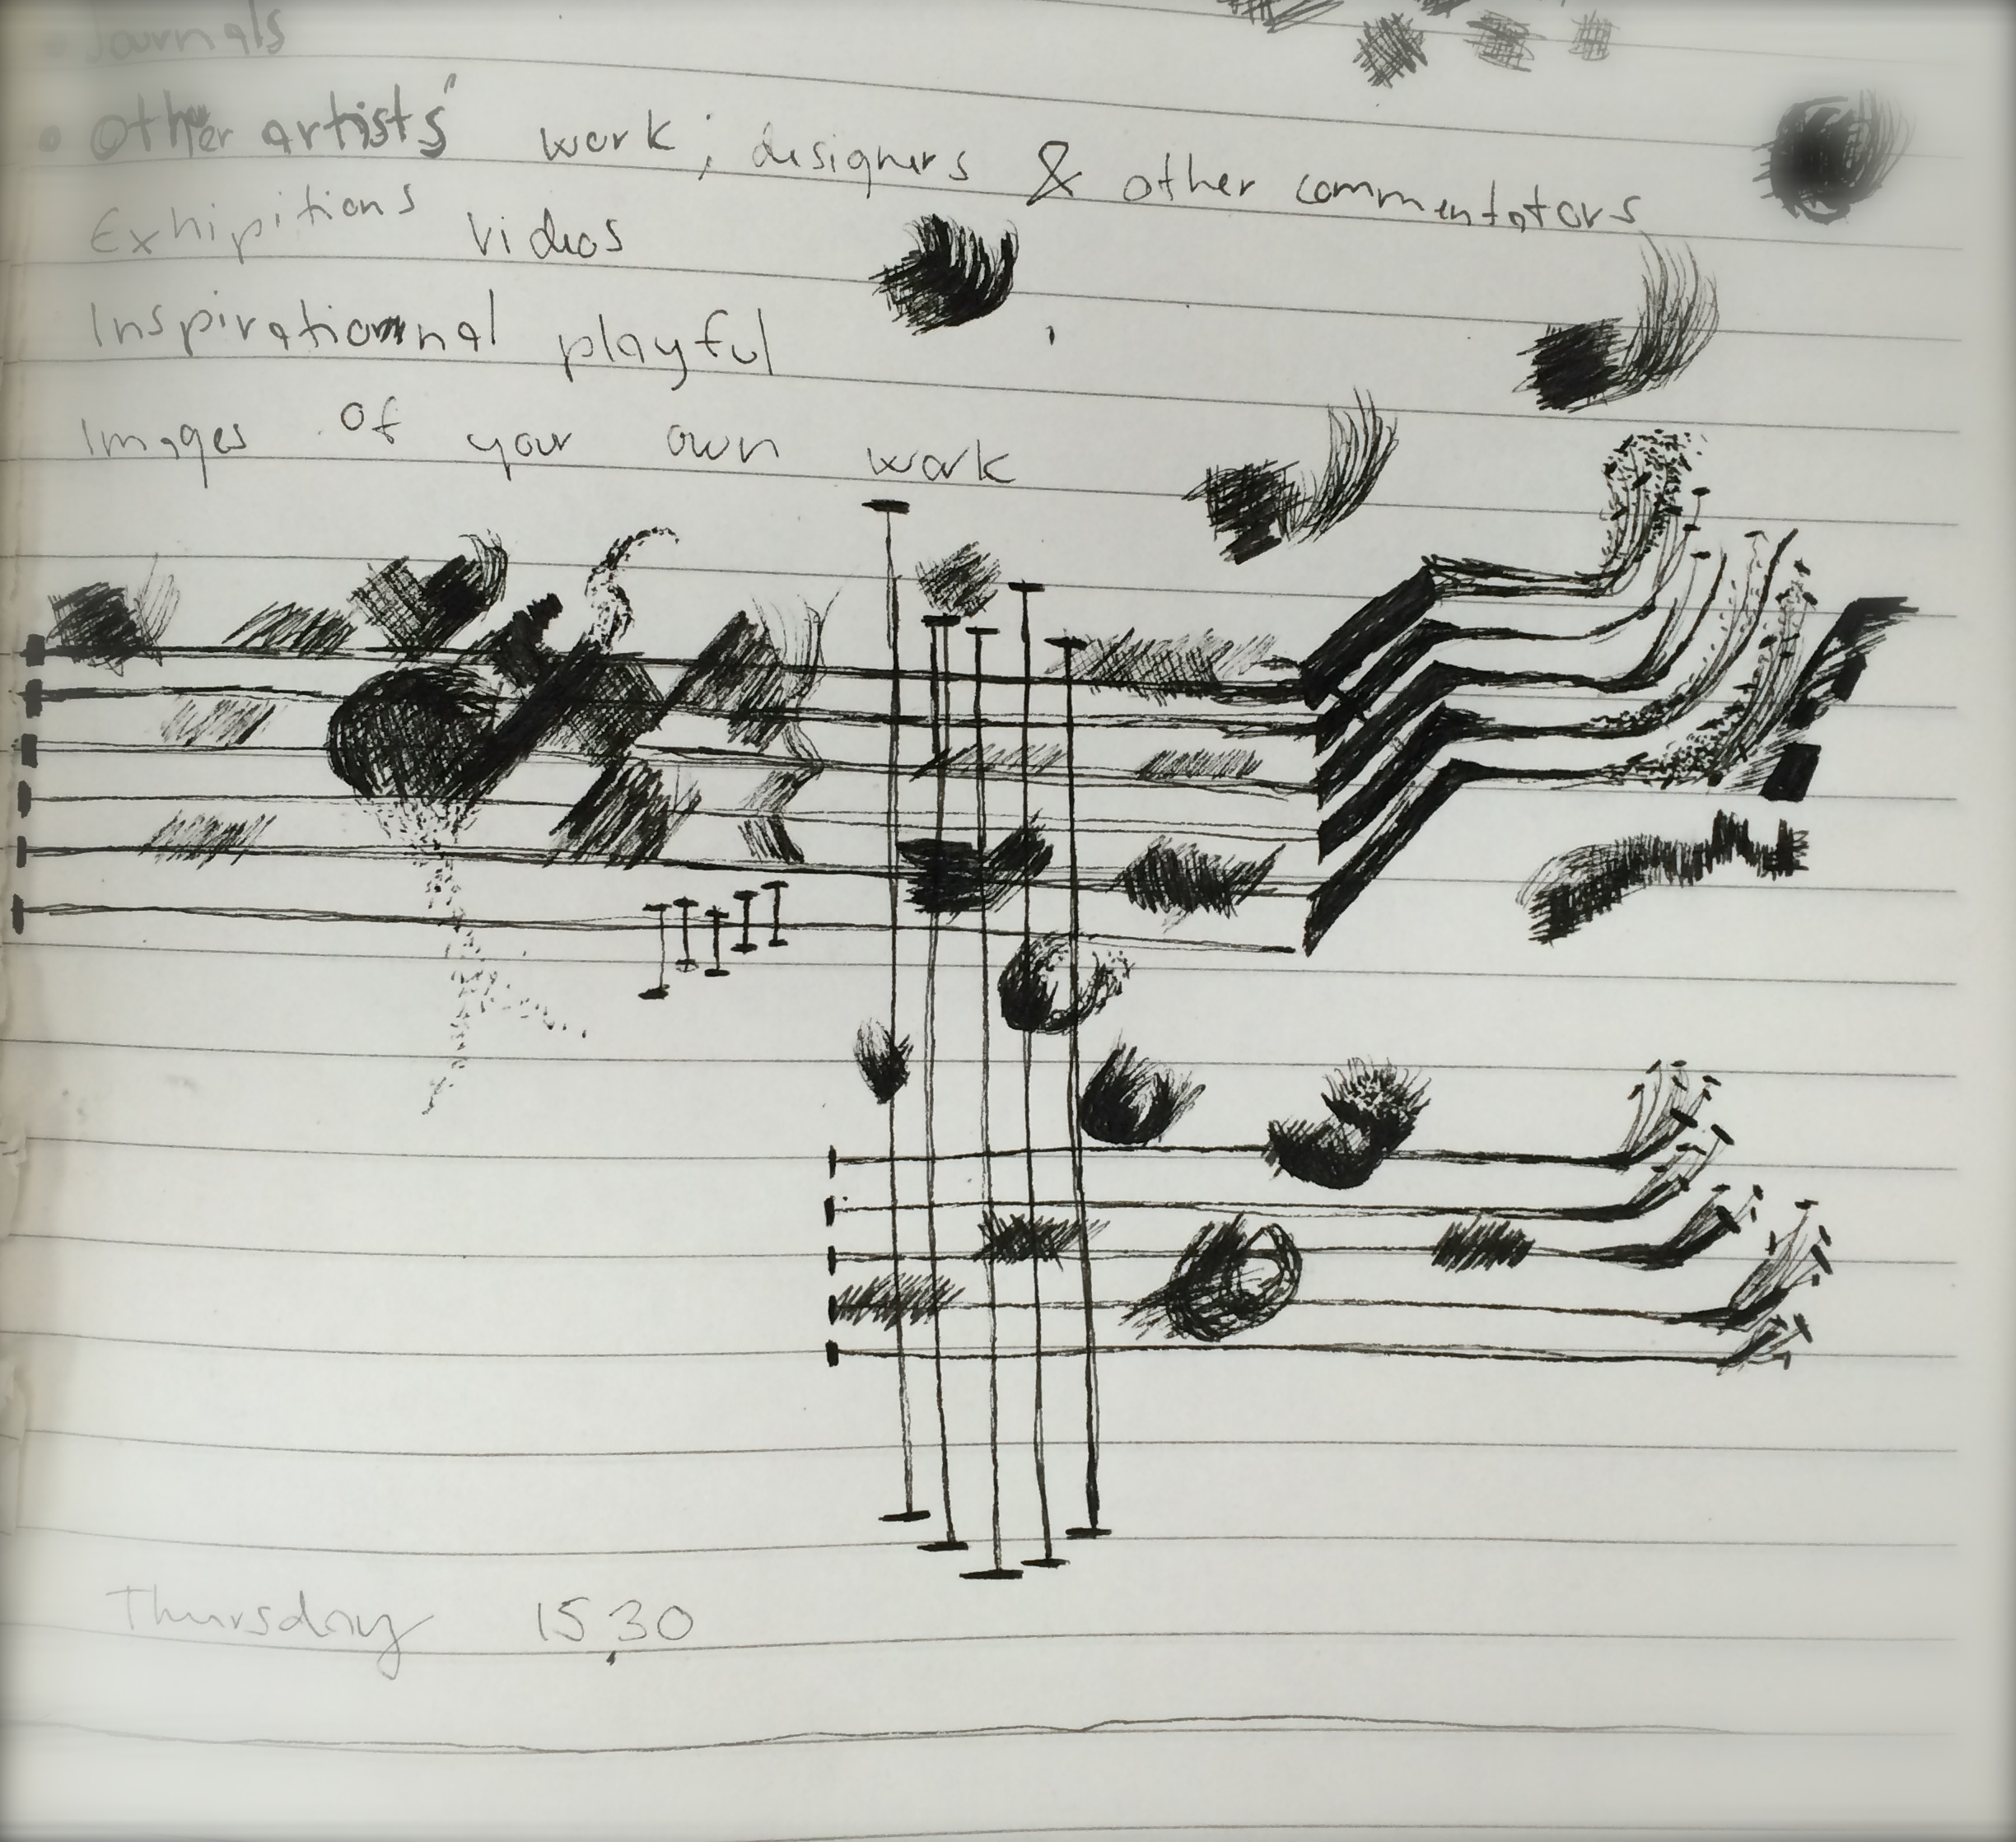 • Journals
• Other artists' work; designers & other commentators
Exhipitions videos
Inspirationnal playful
Images of your own work
Thursday 15,30